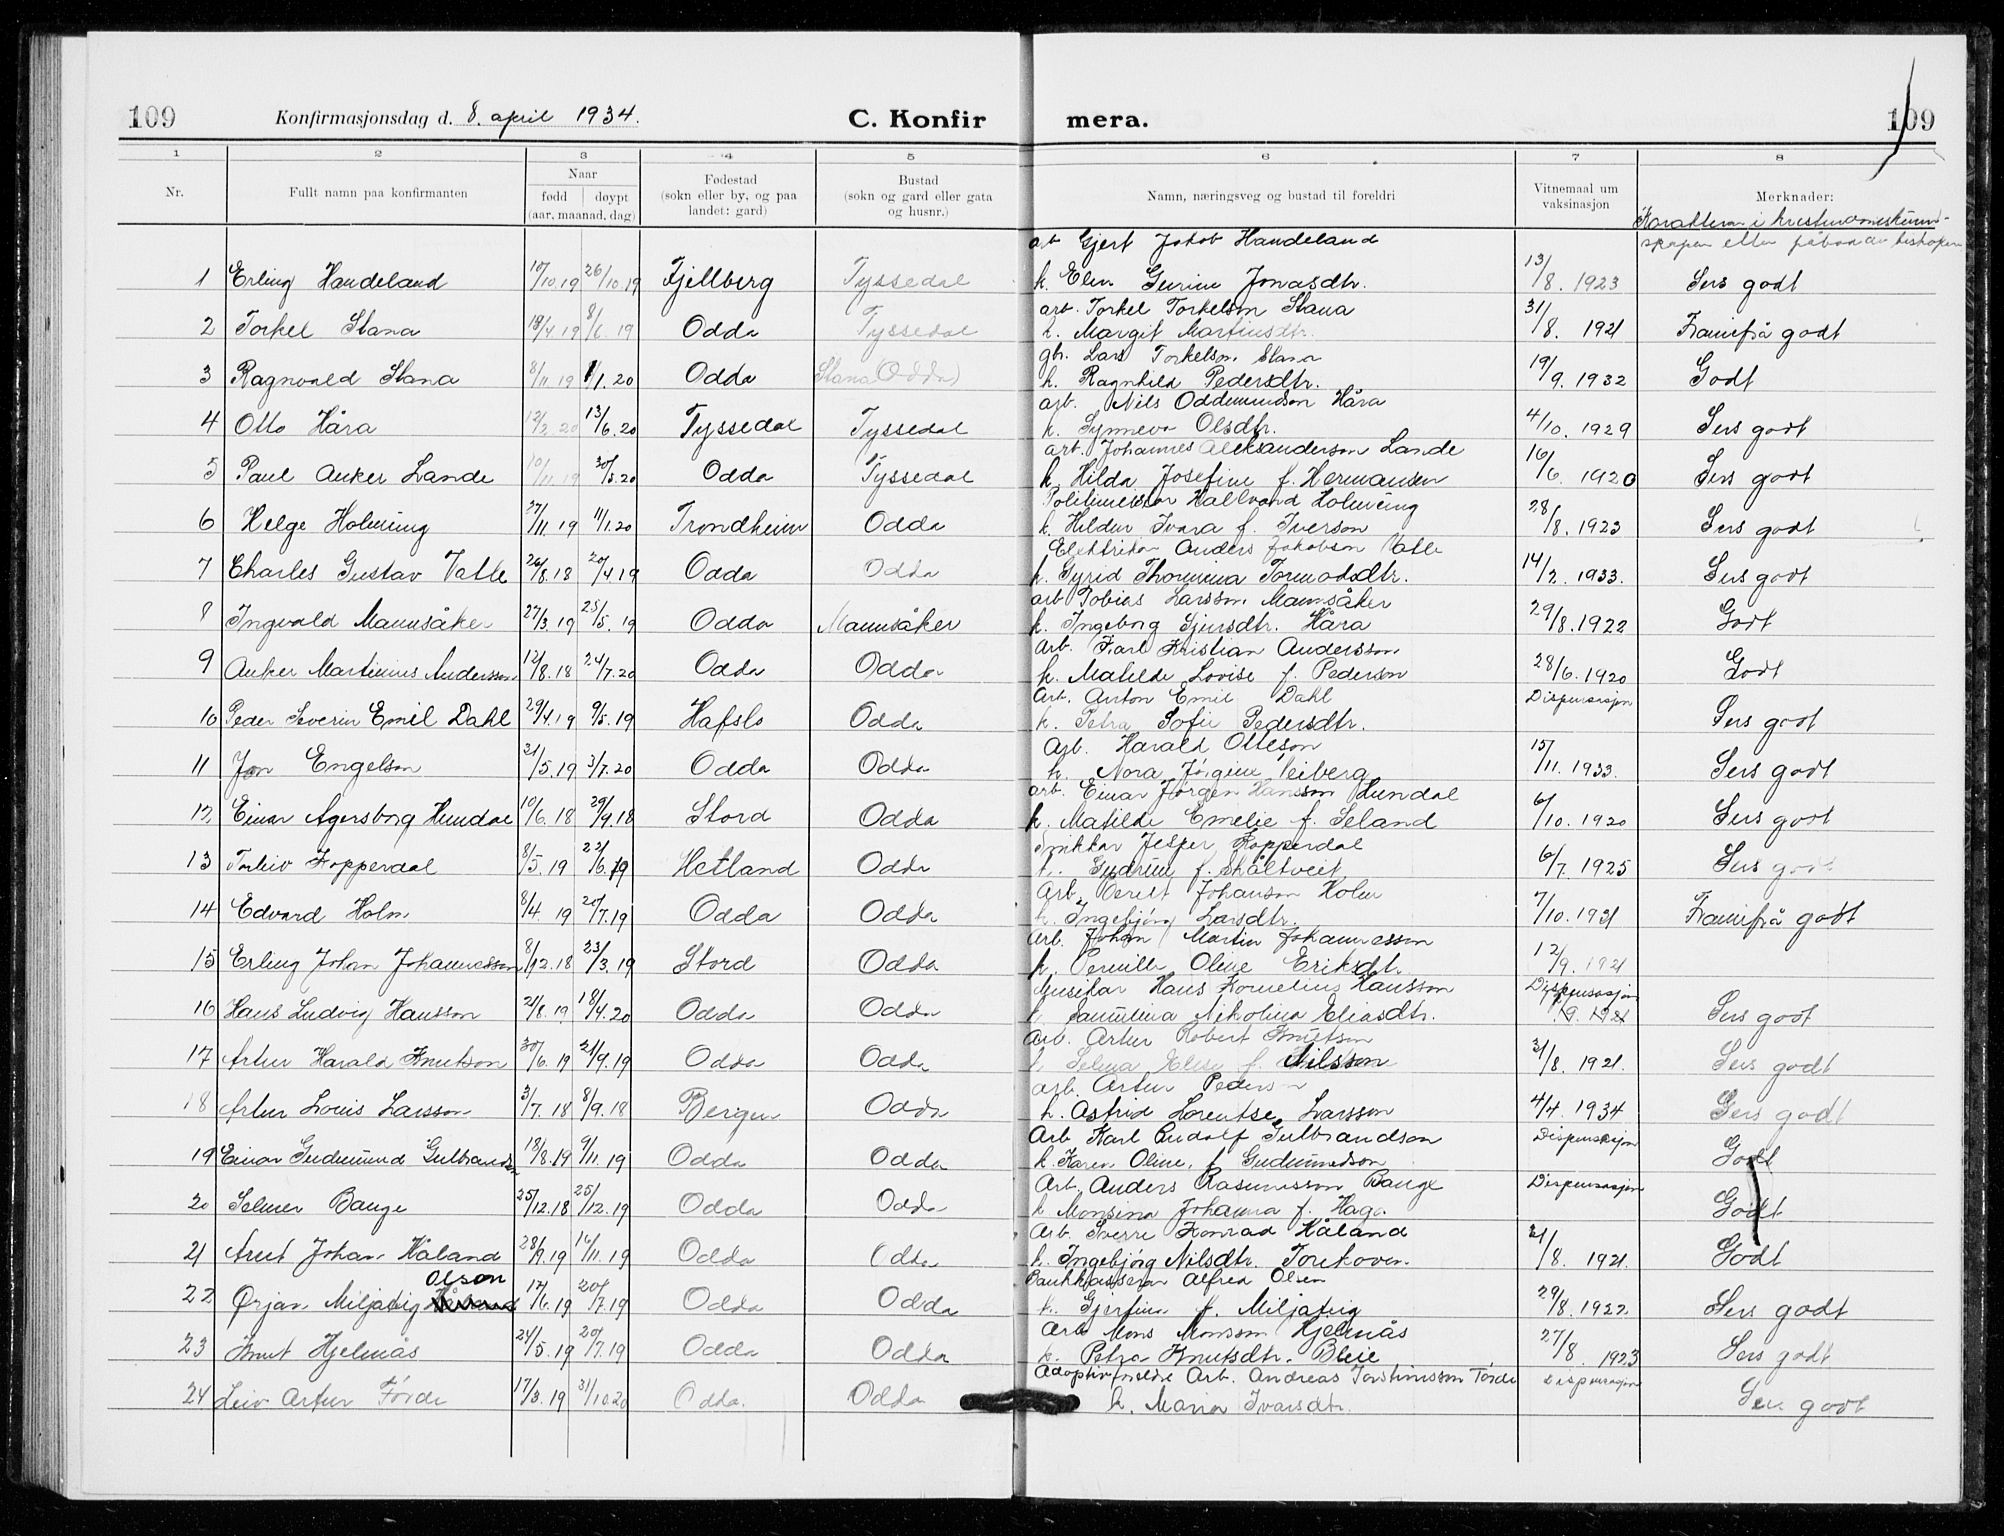 109 Konfirmasjonsdag d. 8. april 1934. C. Konfir mera. 109
1 2 3 4 5 6 7 8
Nr. Fullt namn paa konfirmanten Naar fødd døypt (aar, maanad, dag) Fødestad (sokn eller by, og paa landet: gard) Bustad (sokn og gard eller gata og husnr.) Namn, næringsveg og bustad til foreldri Vitnemaal um vaksinasjon Merknader:
Karakteren i kristendomskunn-
skapen etter påbod av biskopen
arb Gjert Jakob Handeland
1 Erling Handeland 10/10.19 26/10.19 Fjellberg Tyssedal k. Elen Gurine Jonasdtr. 13/8. 1923 Sers godt
arb. Torkel Torkelson Stana
2 Torkel Stana 18/4 19 8/6. 19 Odda Tyssedal k. Margit Martinsdtr. 31/8. 1921 Framifrå godt
gbr. Lars Torkelson Stana
3 Ragnvald Stana 8/11 19 1/1. 20 Odda Stana (Odda) k. Ragnhild Pedersdtr. 19/9. 1932 Godt
arb. Nils Oddmundson Håra
4 Otto Håra 12/2 20 13/6.20 Tyssedal Tyssedal k. Synneva Olsdtr. 4/10. 1929 Sers godt
arb. Johannes Aleksanderson Lande
5 Paul Anker Lande 10/11 19 30/5.20 Odda Tyssedal k Hilda Josefine f. Hermansen 16/6. 1920 Sers godt
Politimeistar Hallvard Holmeing
6 Helge Holming 27/11.19 11/1.20 Trondheim Odda k. Hildur Ivara f. Iverson 28/8. 1923 Sers godt
Elektrikar Anders Jakobson Valle
7 Charles Gustav Valle 26/8.18 20/4.19 Odda Odda k. Gyrid Thormina Tormodsdtr. 14/2. 1933. Sers godt
arb Tobias Larsson Mannsåker
8 Ingvald Mannsåker 27/3.19 25/5.19 Odda Mannsåker k. Ingeborg Gjersdtr. Håra 29/8.1922 Godt
Arb. Karl Kristian Andersson
9 Anker Martinius Andersson 12/8.18 24/7.20 Odda Odda k. Matilde Lovise f. Pederson 28/6.1920 Godt
Arb. Anton Emil Dahl Dispensasjon
10 Peder Severin Emil Dahl 29/4.19 9/5.19 Hafslo Odda k. Petra Sofie Pedersdtr. Sers godt
Arb. Harald Otteson
11 Jon Engelson 31/5.19 3/7.20 Odda Odda k. Nora Jørgine Veiberg 15/11. 1933. Sers godt
arb. Einar Jørgen Hansson Hundal
12 Einar Agersborg Hundal 10/6.18 29/9.18 Stord Odda k. Matilde Emelie f. Seland 6/10. 1920 Sers godt
Snikkar Jesper Kopperdal
13 Torleiv Kopperdal 8/5.19 22/6.19 Hetland Odda k. Gudrun f. Skåltveit 6/7. 1925 Sers godt
Arb. Berelt Johanson Holm
14 Edvard Holm 8/4 19 20/7.19 Odda Odda k. Ingebjørg Larsdtr. 7/10.1921 Framifrå godt
Arb. Johan Martin Johannesson
15 Erling Johan Johannesson 8/12.18 23/3.19 Stord Odda k. Pernille Oline Eriksdtr. 12/9. 1921
Musikar Hans Kornelius Hansson Dispensasjon
16 Hans Ludvig Hansson 21/8.19 18/4.20 Odda Odda k. Jamilma Nikolina Eliasdtr. 9. 1921 Sers godt
Arb. Artur Robert Knutson
17 Artur Harald Knutson 30/6.19 21/9.19 Odda Odda k Selma Elise f. Nilsson 31/8. 1921. Sers godt
arb. Artur Pederson
18 Artur Louis Larsson 3/7.18 8/9.18 Bergen Odda k. Astrid Lorentse Larsson 4/4. 1934 Sers godt
Arb. Karl Rudolf Gulbrandson Dispensasjon
19 Einar Gudmund Gulbrandson 18/8.19 9/11.19 Odda Odda k. Karen Oline f. Gudmundson Godt
Arb. Anders Rasmusson Bauge Dispensasjon
20 Selmer Bauge 25/12.18 25/12.19 Odda Odda k Monsina Johanna f. Haga Godt
Arb. Sverre Konrad Håland
21 Arnt Johan Håland 28/9.19 16/11.19 Odda Odda k. Ingebjørg Nilsdtr. Torekoven 31/8. 1921. Godt
Olson Bankkasserar Alfred Olsen
22 Ørjan Miljateig 17/6.19 20/7.19 Odda Odda k. Gjertine f. Miljateig 29/8. 1922 Sers godt
Arb Mons Monsson Hjelmås
23 Knut Hjelmås 24/5.19 20/7.19 Odda Odda k. Petra Knutsdtr. Bleie 27/8. 1923 Sers godt
Adoptivforeldre Arb. Andreas Torstinsson Førde Dispensasjon
24 Leiv Artur Førde 17/3.19 31/10.20 Odda. Odda k. Maria Ivarsdtr. Sers godt